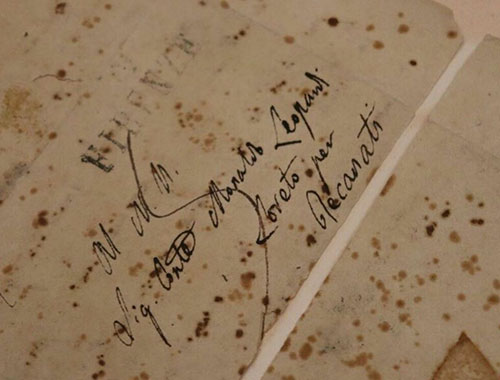 FIRENZE
Al N. U.
Sig. Conte Monaldo Leopardi
Loreto per
Recanati